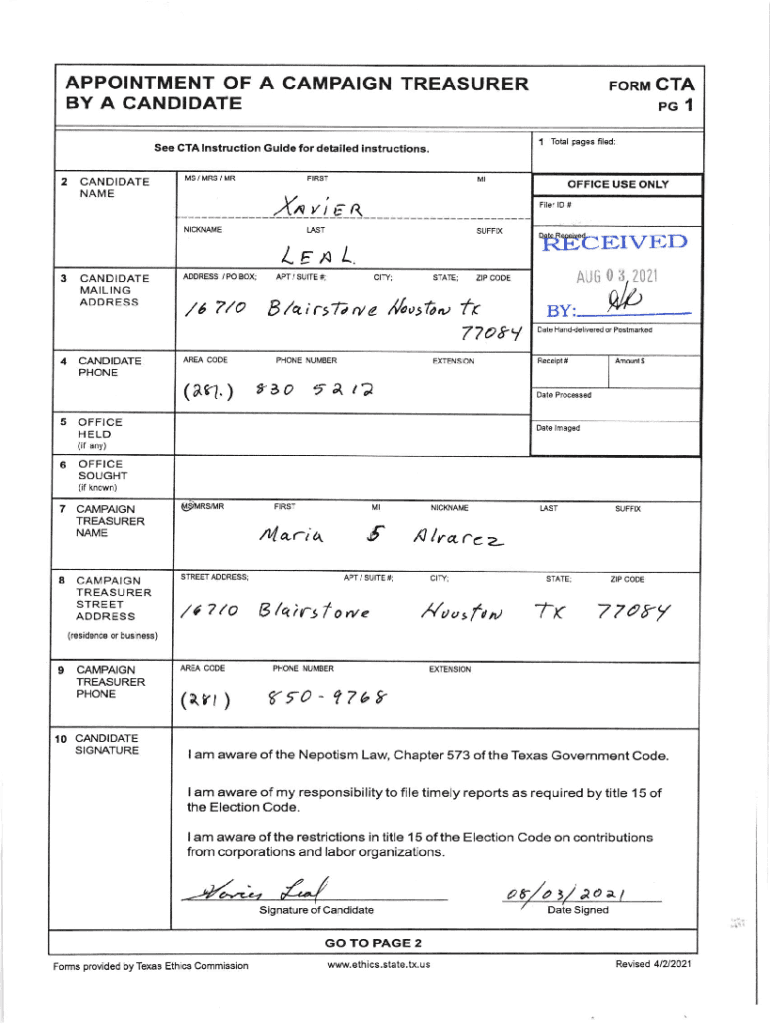 APPOINTMENT OF A CAMPAIGN TREASURER
BY A CANDIDATE
FORM CTA
PG 1
See CTA Instruction Guide for detailed instructions.
1 Total pages filed:
2 CANDIDATE
NAME
MS / MRS / MR FIRST MI
XAViER
NICKNAME LAST SUFFIX
LEAL
OFFICE USE ONLY
Filer ID #
Date Received
RECEIVED
AUG 03 2021
BY:
3 CANDIDATE
MAILING
ADDRESS
ADDRESS / PO BOX; APT / SUITE #; CITY; STATE; ZIP CODE
16710 Blairstone Houston tx
77084
Date Hand-delivered or Postmarked
4 CANDIDATE
PHONE
AREA CODE PHONE NUMBER EXTENSION
(281.) 830 5212
Receipt # Amount $
Date Processed
5 OFFICE
HELD
(if any)
Date Imaged
6 OFFICE
SOUGHT
(if known)
7 CAMPAIGN
TREASURER
NAME
MS/MRS/MR FIRST MI NICKNAME LAST SUFFIX
Maria S Alvarez
8 CAMPAIGN
TREASURER
STREET
ADDRESS
(residence or business)
STREET ADDRESS; APT / SUITE #; CITY; STATE; ZIP CODE
16710 Blairstone Houston TX 77084
9 CAMPAIGN
TREASURER
PHONE
AREA CODE PHONE NUMBER EXTENSION
(281) 850-9768
10 CANDIDATE
SIGNATURE
I am aware of the Nepotism Law, Chapter 573 of the Texas Government Code.
I am aware of my responsibility to file timely reports as required by title 15 of
the Election Code.
I am aware of the restrictions in title 15 of the Election Code on contributions
from corporations and labor organizations.
Xavier Leal 08/03/2021
Signature of Candidate Date Signed
GO TO PAGE 2
Forms provided by Texas Ethics Commission www.ethics.state.tx.us Revised 4/2/2021